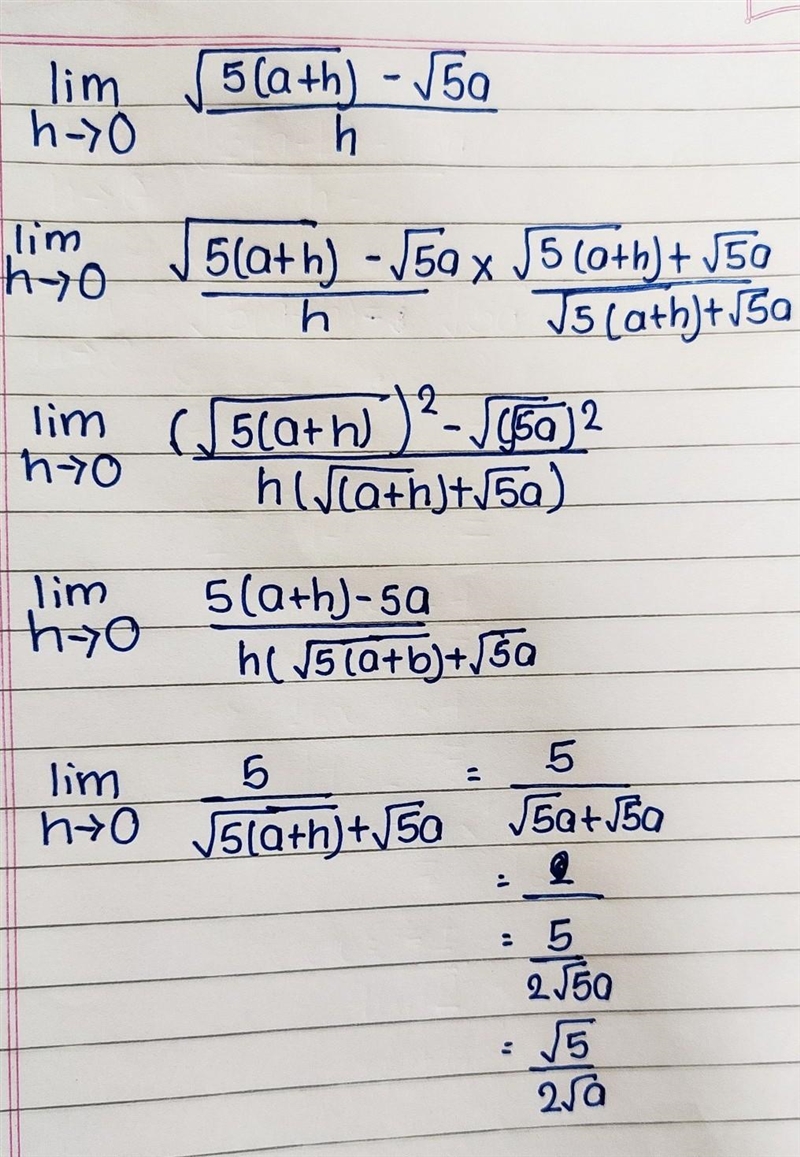 lim h→0 √5(a+h) - √5a / h
lim h→0 √5(a+h) - √5a / h × √5(a+h) + √5a / √5(a+h)+√5a
lim h→0 (√5(a+h))² - √(5a)² / h(√(a+h)+√5a)
lim h→0 5(a+h)-5a / h(√5(a+b)+√5a
lim h→0 5 / √5(a+h)+√5a = 5 / √5a+√5a
=
= 5 / 2√5a
= √5 / 2√a